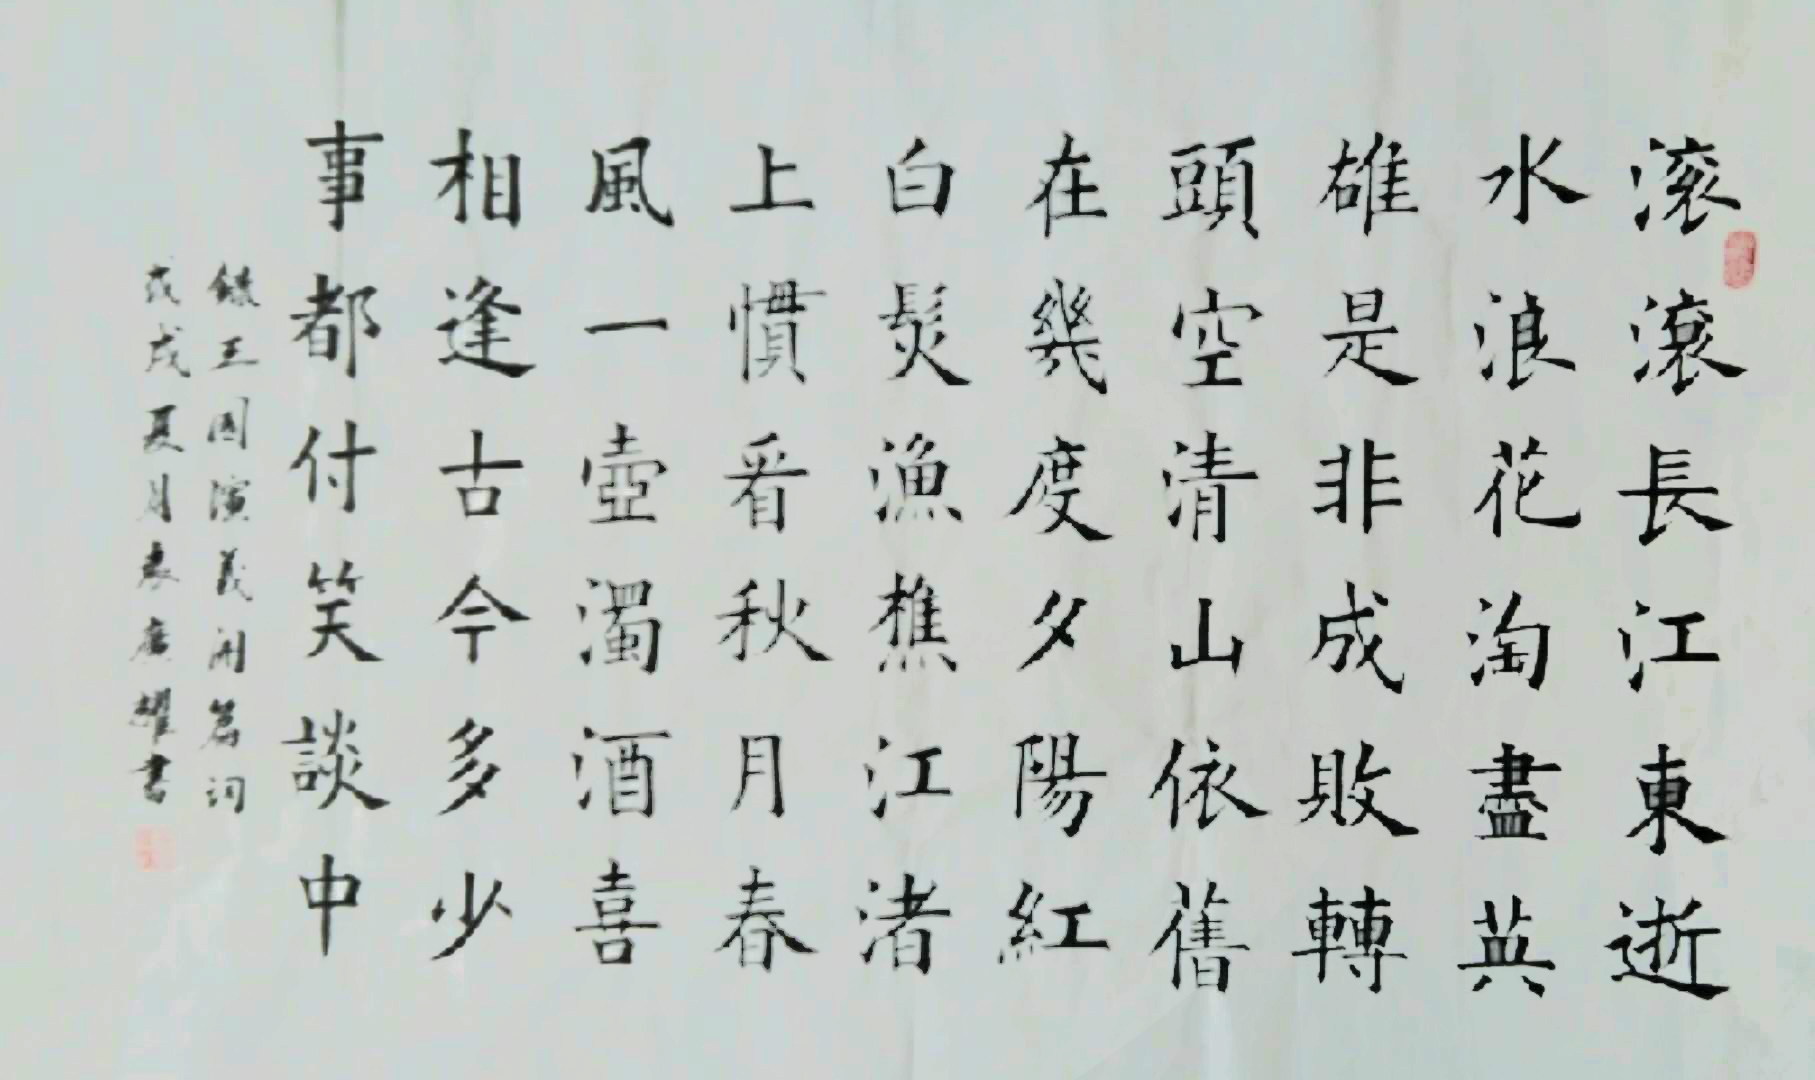 滚滾長江東逝
水浪花淘盡英
雄是非成敗轉
頭空清山依舊
在幾度夕陽紅
白髮漁樵江渚
上慣看秋月春
風一壺濁酒喜
相逢古今多少
事都付笑談中
錄三國演義開篇詞
戊戌夏月袁廣耀書